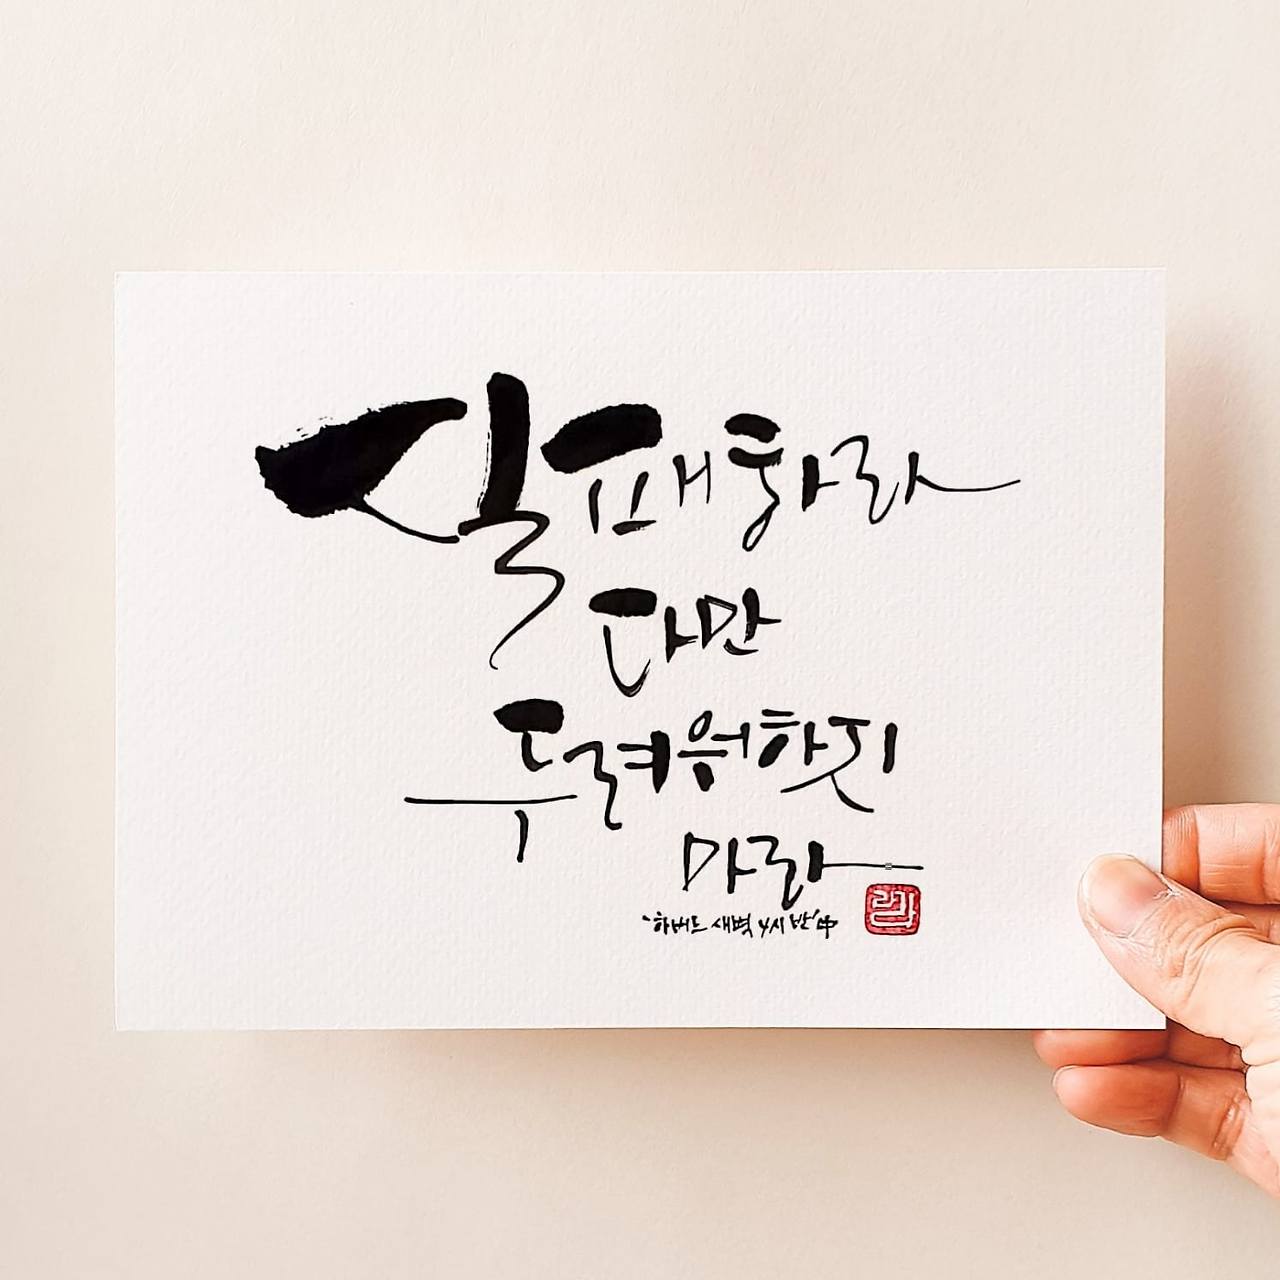 실패하라
다만
두려워하지
마라
'하버드 새벽 4시 반' 中